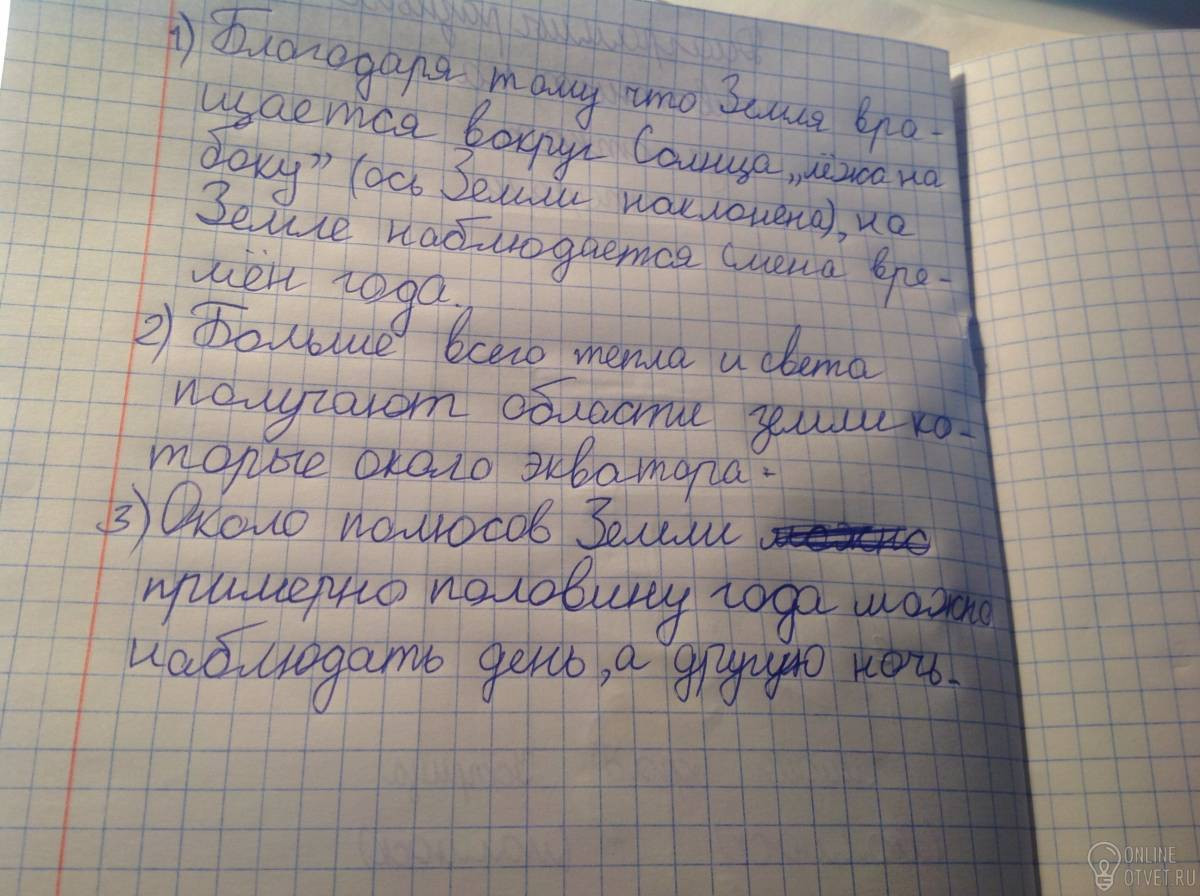 1) Благодаря тому что Земля вра-
щается вокруг Солнца „лёжа на
боку” (ось Земли наклонена), на
Земле наблюдается смена вре-
мён года.
2) Больше всего тепла и света
получают области земли ко-
торые около экватора.
3) Около полюсов Земли
примерно половину года можно
наблюдать день, а другую ночь.
ONLINE
OTVET.RU